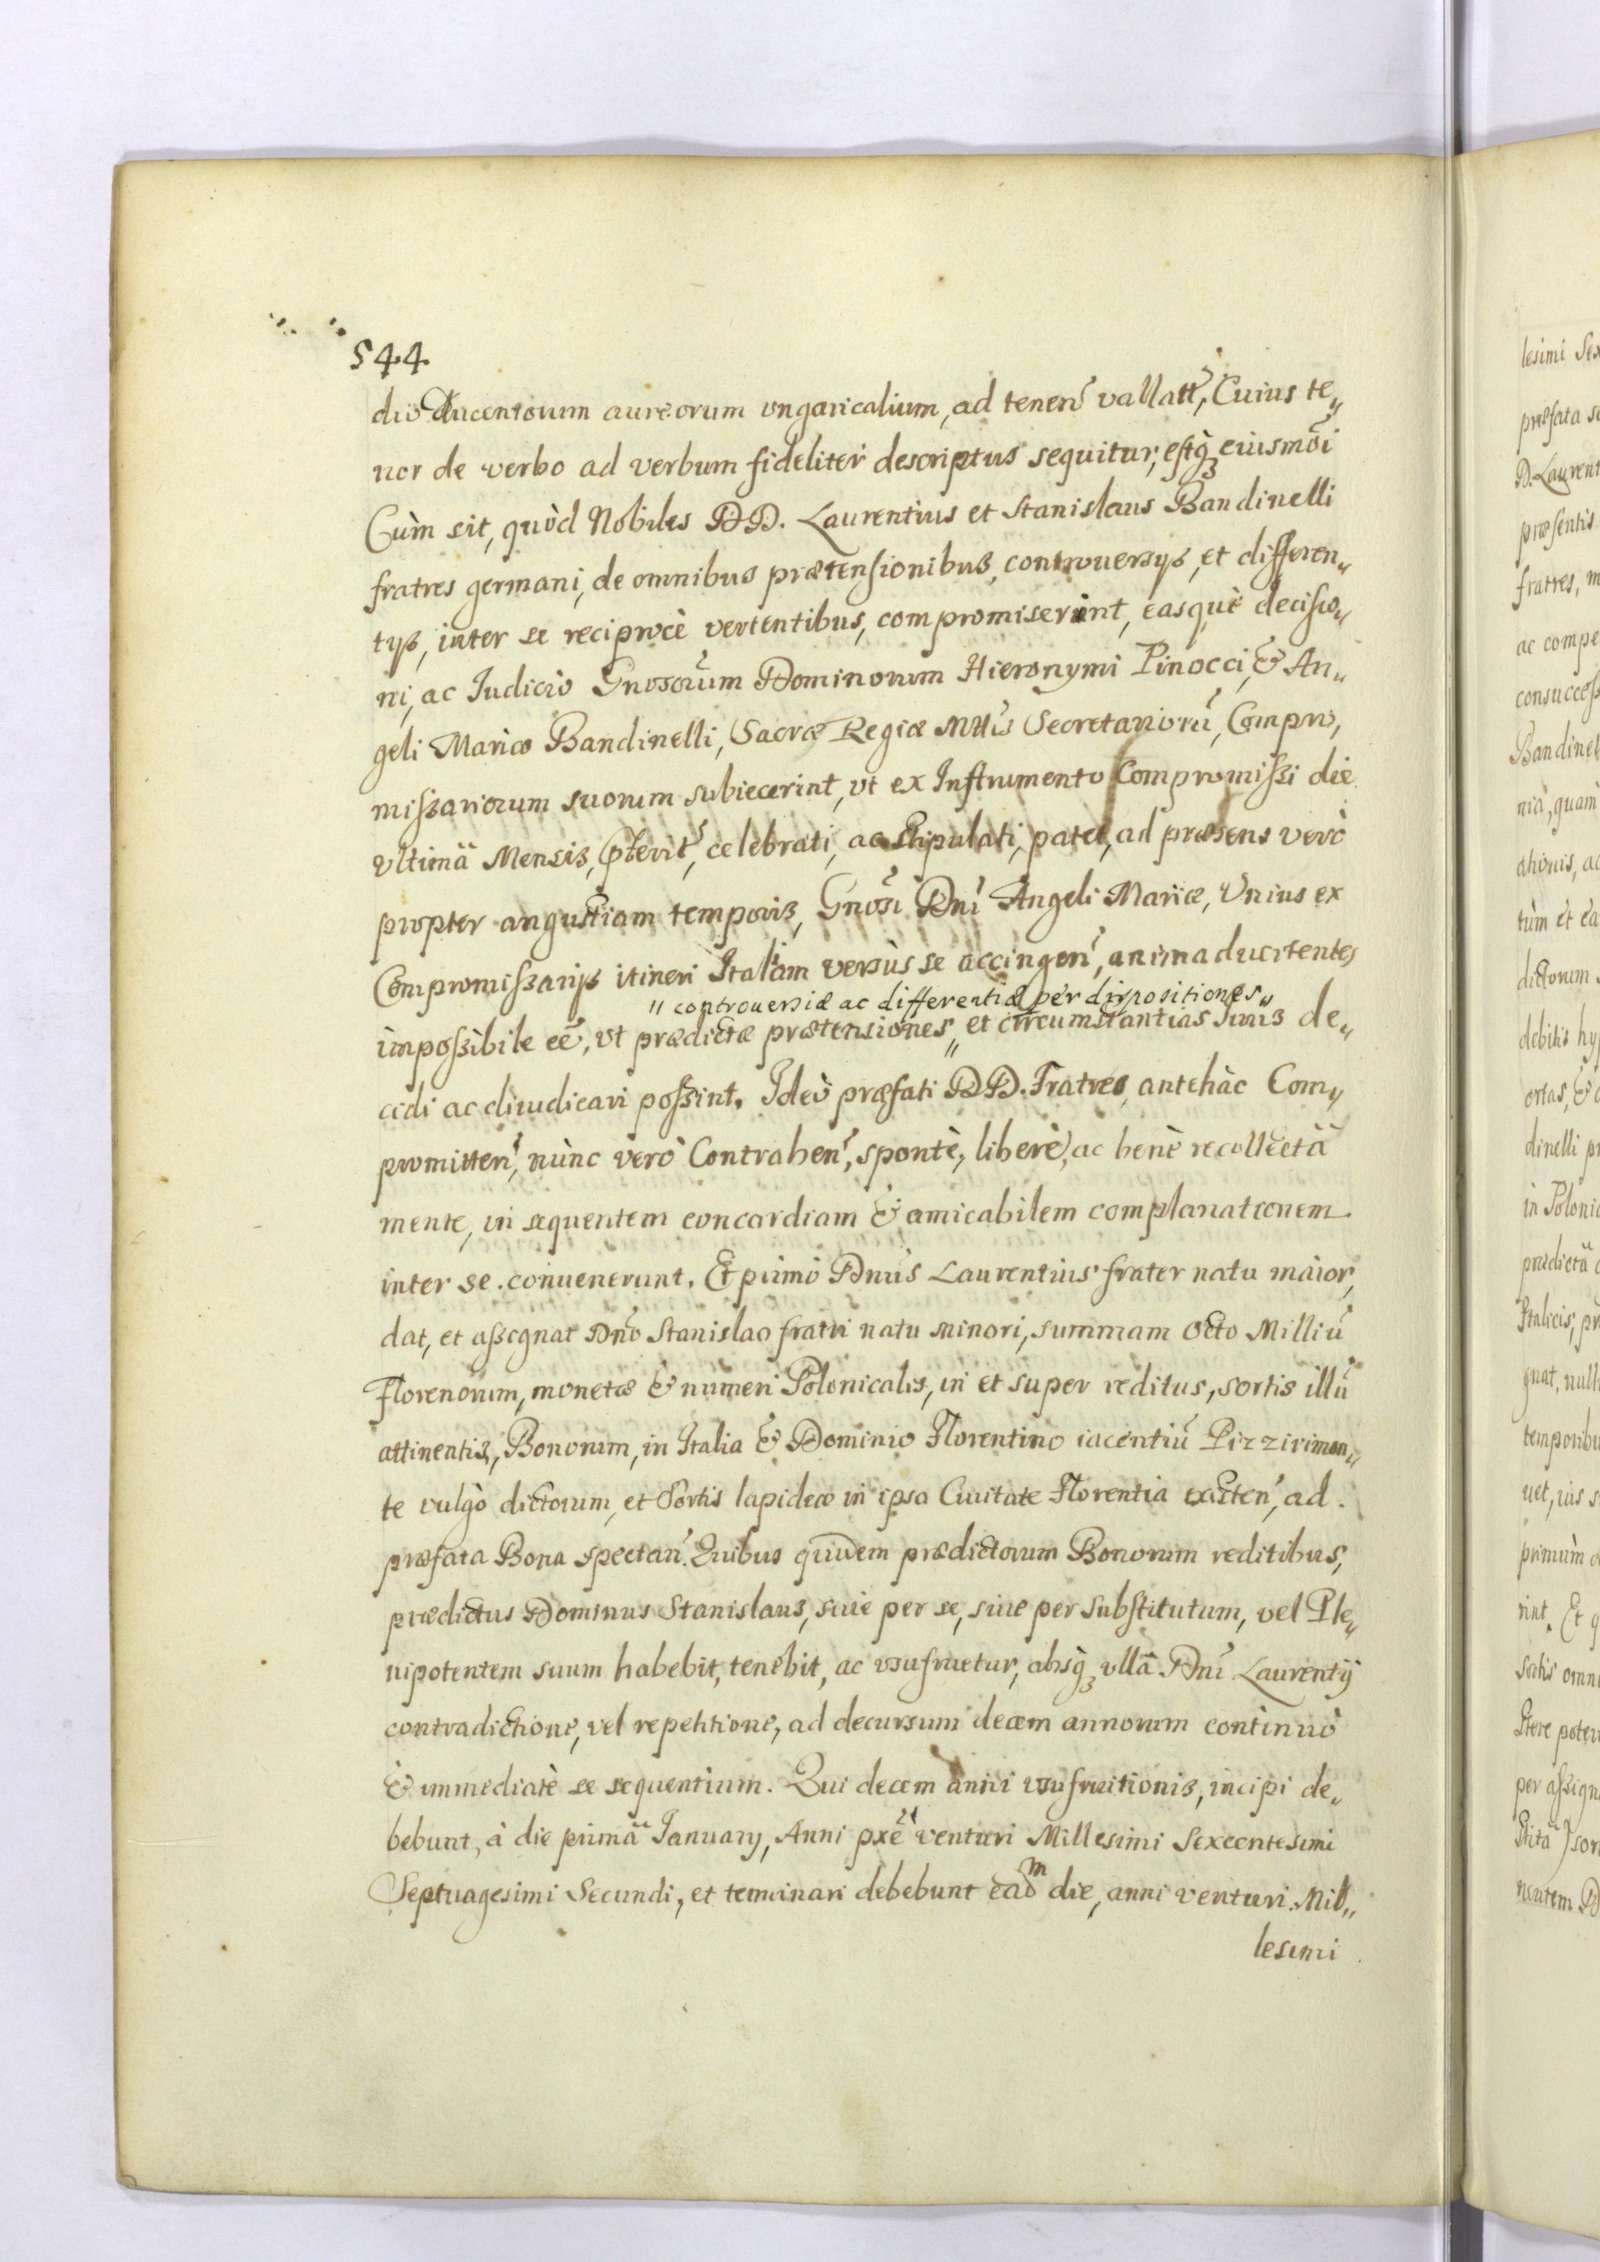 544.
dio Ducentorum aureorum ungaricalium, ad tenen̄ vallatt̄, Cuius te„
nor de verbo ad verbum fideliter descriptus sequitur, estq́₃ eiusmōi
Cùm sit, quòd Nobiles DD. Laurentius et Stanislaus Bandinelli
fratres germani, de omnibus prætensionibus, controuersys, et differen„
tys, inter se reciprocè vertentibus, compromiserint, easquè decisio„
ni, ac Iudicio Gnosorūm Dominorum Hieronymi Pinocci, & An„
geli Mariæ Bandinelli, Sacræ Regiæ Mttis Secretariorū, Compro,
missariorum suorum subiecerint, vt ex Instrumento Compromissi die
vltimâ Mensis, pterit̄, celebrati, ac stipulati, patet, ad præsens verò
propter angustiam temporis, Gnosi Dnī Angeli Mariæ, Vnius ex
Compromissarijs itineri Italiam versùs se accingen̄, animaduertentes
" controuersiæ ac differentiæ per dispositiones„
impossibile eē, vt prædictæ prætensiones „ et circumstantias Iuris de„
cidi ac diiudicari possint. Ideò præfati DD. Fratres, antehàc Com„
promitten̄, nùnc verò Contrahen̄, spontè, liberè, ac benè recollectâ
mente, in sequentem concordiam & amicabilem complanationem
inter se conuenerunt. Et primò Dnūs Laurentius frater natu maior,
dat, et assignat Dnō Stanislao fratri natu minori, summam Octo Milliū
Florenorum, monetæ & numeri Polonicalis, in et super reditus, sortis illū
attinentis, Bonorum, in Italia & Dominio Florentino iacentiū Pizzirimon„
te vulgò dictorum, et Sortis lapideæ in ipsa Ciuitate Florentia exīsten̄, ad
præfata Bona spectan̄. Quibus quidem prædictorum Bonorum reditibus,
prædictus Dominus Stanislaus, siue per se, siue per substitutum, vel Ple„
nipotentem suum habebit, tenebit, ac vsufruetur, absq́₃ vllâ Dnī Laurentij
contradictione, vel repetitione, ad decursum decem annorum continuò
& immediatè se sequentium. Qui decem anni vsufruitionis, incipi de„
bebunt, à die primâ Ianuarij, Anni pxē venturi Millesimi Sexcentesimi
Septuagesimi Secundi, et terminari debebunt eadm die, anni venturi Mil„
lesimi